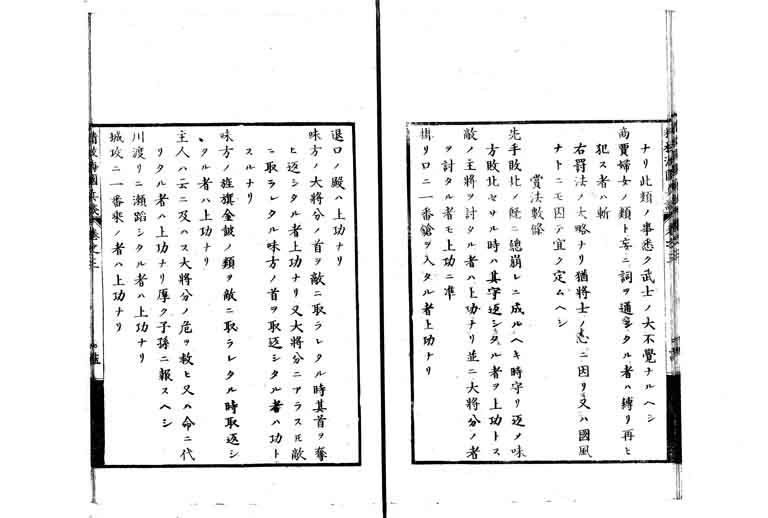 ナリ此類ノ事悉ク武士ノ大不覺ナルヘシ
商賈婦女ノ類ト妄ニ詞ヲ通シタル者ハ縛リ再ヒ
犯ス者ハ斬
右罰法ノ大略ナリ猶將士ノ志ニ因リ又ハ國風
ナトニモ因テ宜ク定ムヘシ
賞法數條
先手敗北ノ際ニ總崩レニ成ルヘキ時守リ返ノ味
方敗北セサル時ハ其守返シタル者ヲ上功トス
敵ノ主將ヲ討タル者ハ上功ナリ並ニ大將分ノ者
ヲ討タル者モ上功ニ准
掛リ口ニ一番鎗ヲ入タル者上功ナリ
退口ノ殿ハ上功ナリ
味方ノ大將分ノ首ヲ敵ニ取ラレタル時其首ヲ奪
ヒ返シタル者上功ナリ又大將分ニアラス𪜈敵
ニ取ラレタル味方ノ首ヲ取返シタル者ハ功ト
スルナリ
味方ノ旌旗金皷ノ類ヲ敵ニ取ラレタル時取返シ
タル者ハ上功ナリ
主人ハ云ニ及ハス大將分ノ危ヲ救ヒ又ハ命ニ代
リタル者ハ上功ナリ厚ク子孫ニ報スヘシ
川渡リニ瀬蹈シタル者ハ上功ナリ
城攻ニ一番乘ノ者ハ上功ナリ
海國兵談 卷之三